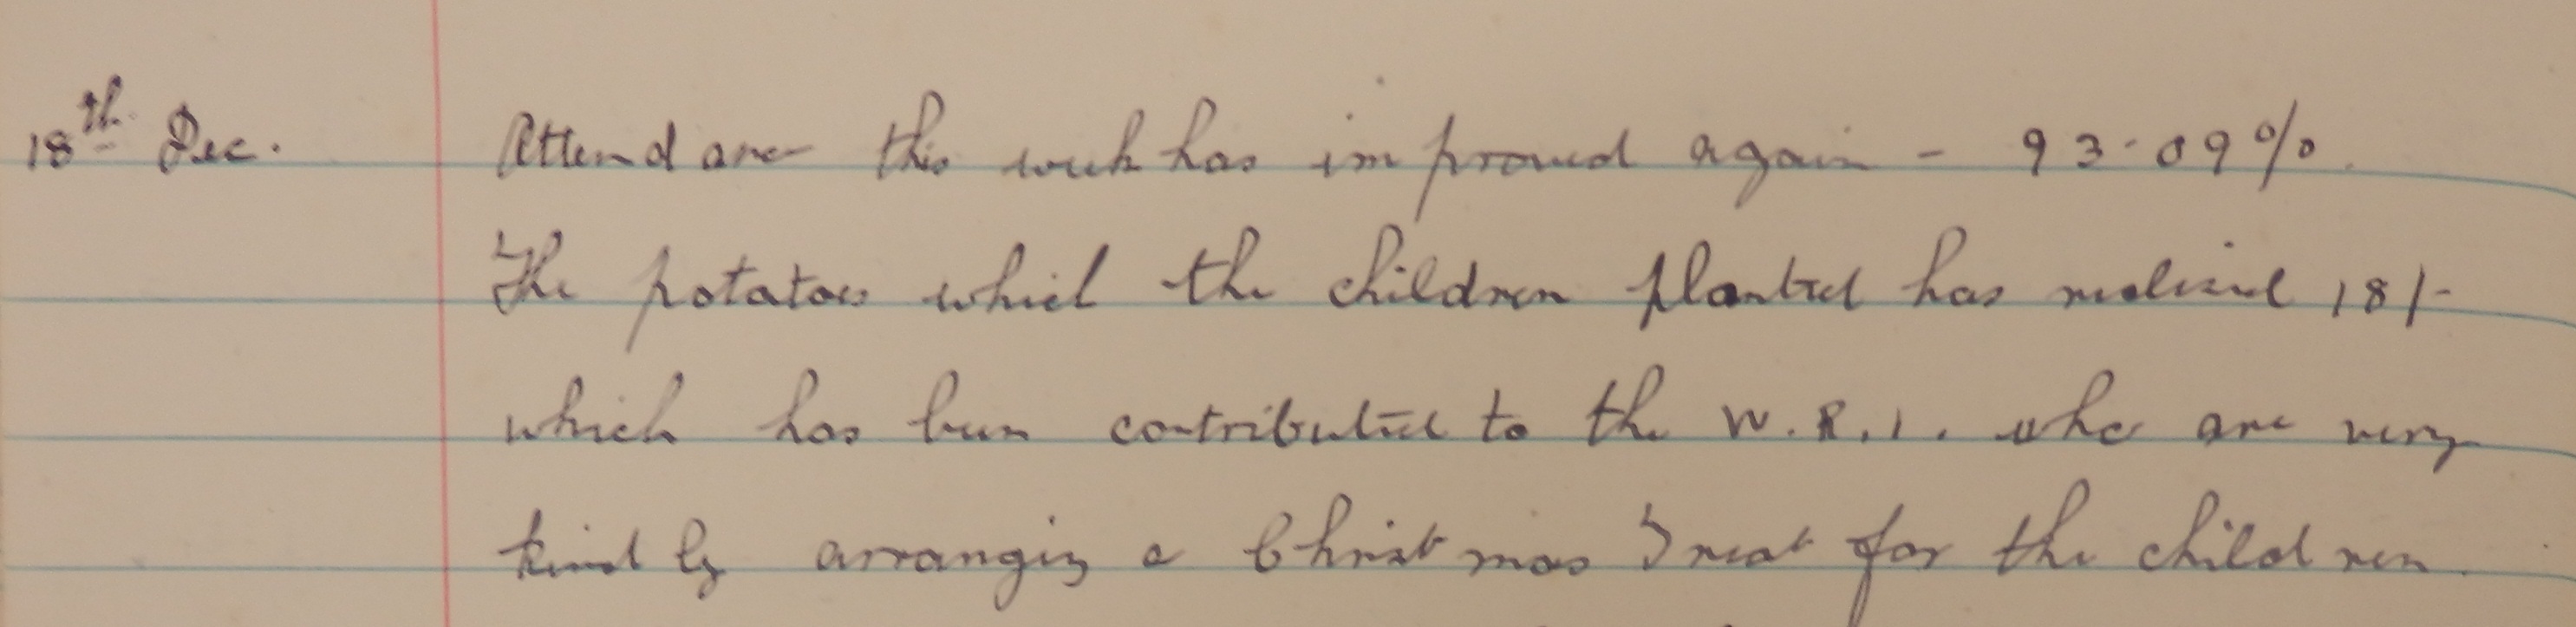 18th Dec. Attendance this week has improved again - 93.09%.
The potatoes which the children planted has realised 18/-
which has been contributed to the W.R.I. who are very
kindly arranging a Christmas Treat for the children.